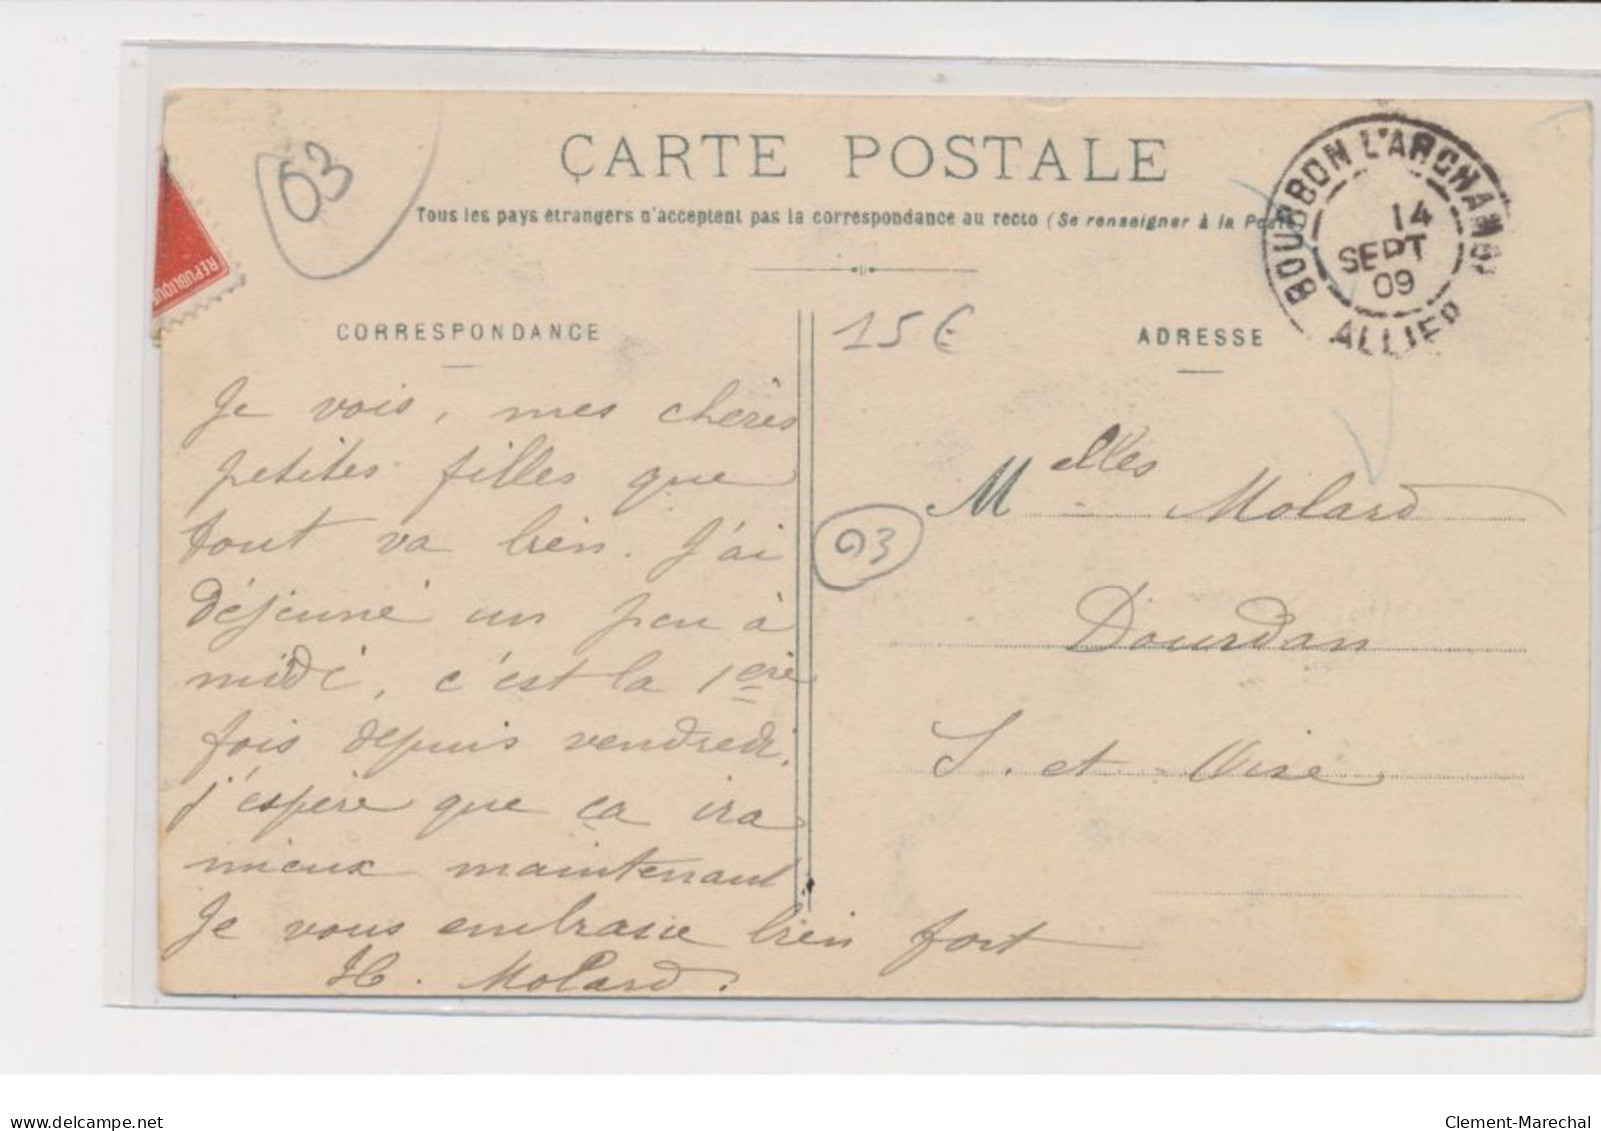 CARTE POSTALE
Tous les pays étrangers n'acceptent pas la correspondance au recto (Se renseigner à la Poste
63
REPUBLIQUE
BOURBON L'ARCHAMB
14
SEPT
09
ALLIER
CORRESPONDANCE
15€
ADRESSE
Je vois, mes chères
petites filles que
tout va bien. J'ai
déjeuné un peu à
midi, c'est la 1ère
fois depuis vendredi,
j'espère que ça ira
mieux maintenant
Je vous embrasse bien fort
H. Molard.
03
Melles Molard
Dourdan
S. et Oise
delcampe.net
Clement-Marechal